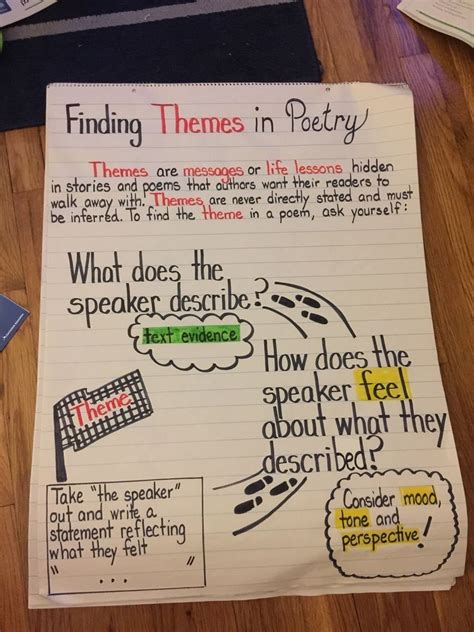 Finding Themes in Poetry
Themes are messages or life lessons hidden
in stories and poems that authors want their readers to
walk away with! Themes are never directly stated and must
be inferred. To find the theme in a poem, ask yourself:
What does the
speaker describe?
text evidence
How does the
speaker feel
about what they
described?
Consider mood,
tone and
perspective!
Theme
Take "the speaker"
out and write a
statement reflecting
what they felt
" . . . "